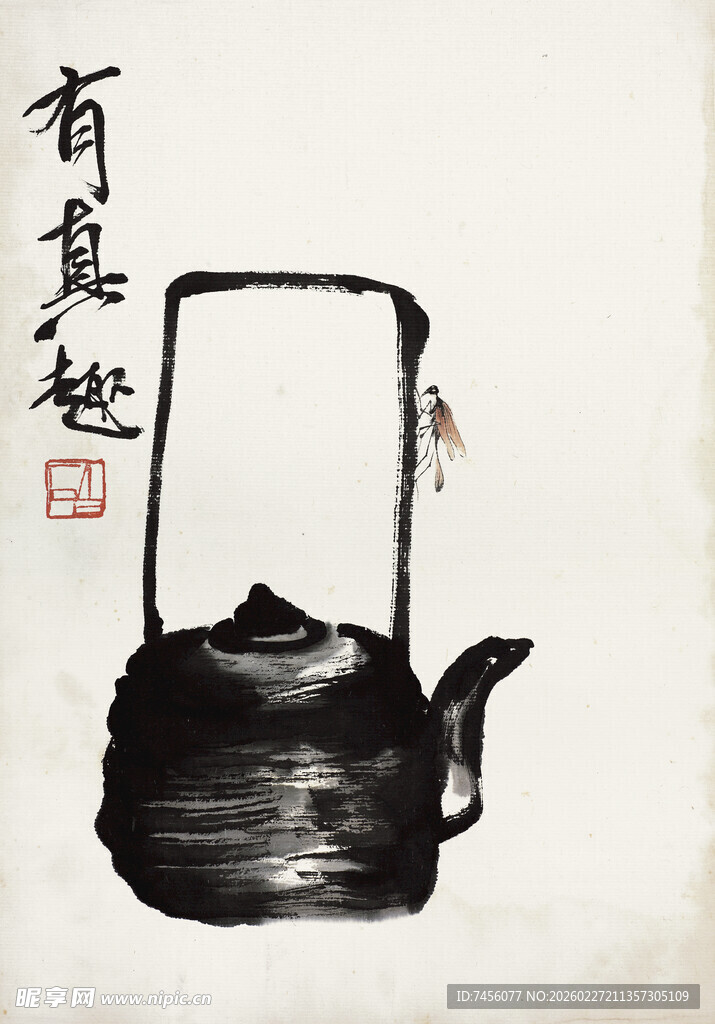 有真趣
昵享网 www.nipic.cn
ID:7456077 NO:20260227211357305109